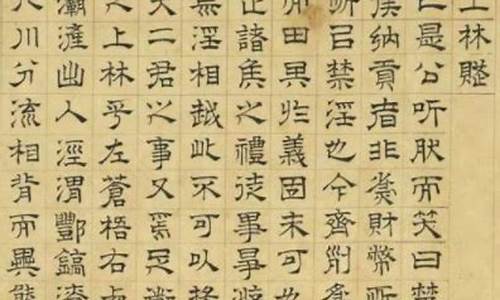 上林賦
亡是公听肰而笑曰楚
矦納貢者非為財幣所
所㠯禁淫也今齊列為
而田其於義固未可也
正諸矦之禮徒事爭
荒淫相越此不可以揚
夫二君之事又焉足道
之上林乎左蒼梧右西
灞滻出入涇渭酆鎬潦
八川分流相背而異態